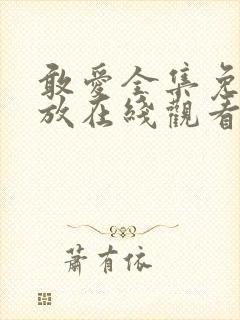 敢愛全集免
放在綫觀看
蕭有依